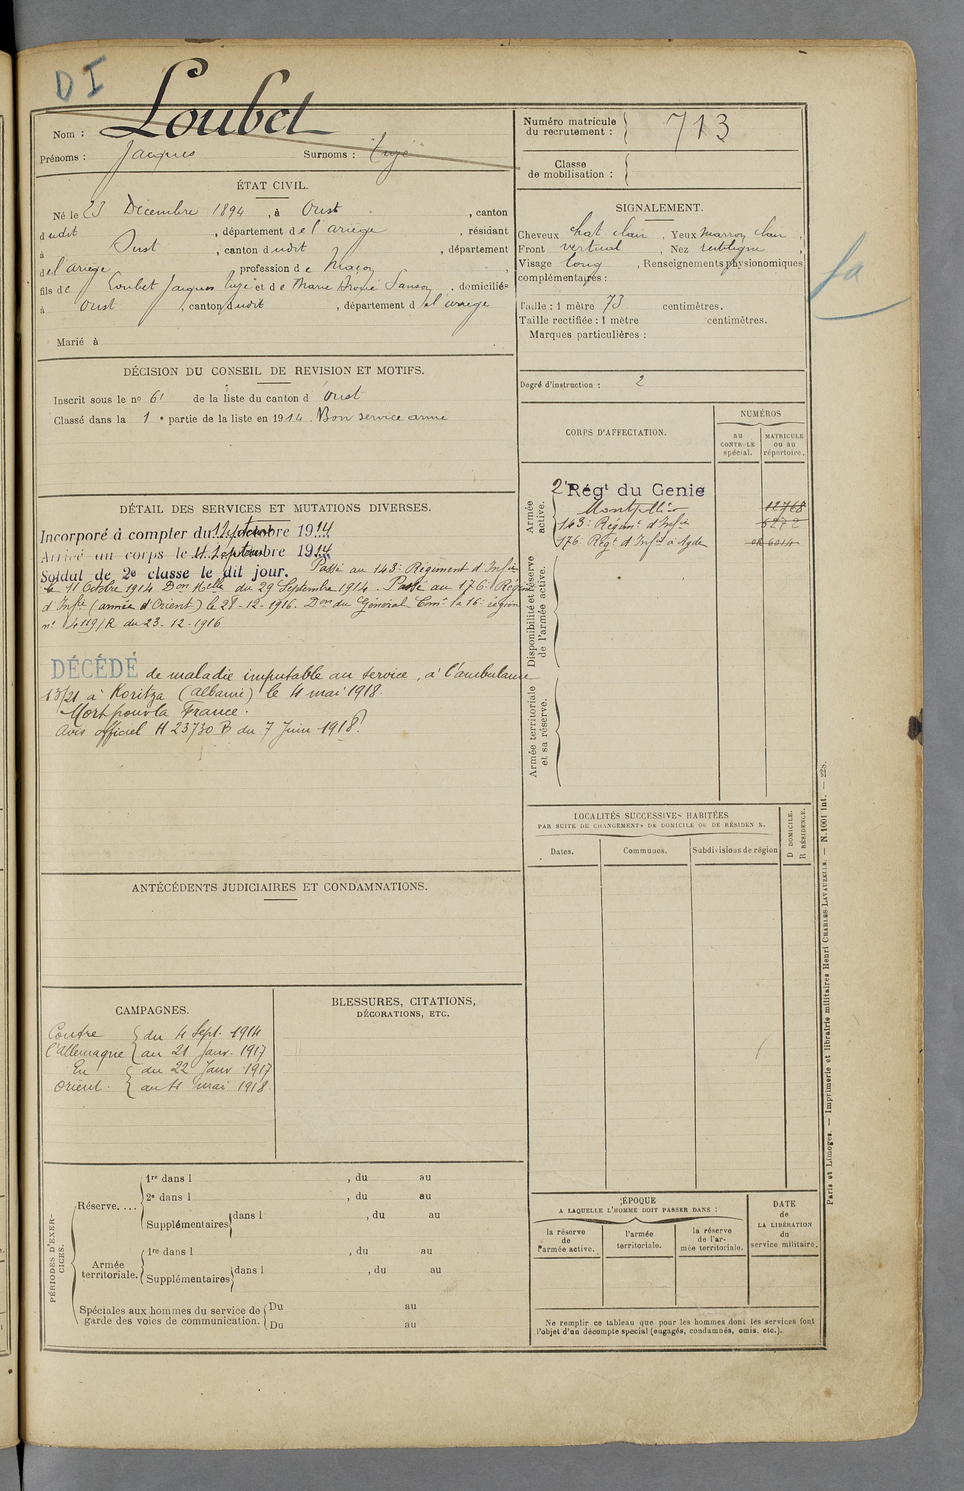 D I
Nom : Loubet
Prénoms : Jacques Surnoms : Tujé
Numéro matricule du recrutement : 713
Classe de mobilisation :
ÉTAT CIVIL.
Né le 23 Décembre 1894, à Oust, canton
dudit, département de l'ariège, résidant
à Oust, canton dudit, département
de l'ariège, profession de Maçon,
fils de Loubet Jacques Tujé et de Marie, domiciliés
à Oust, canton dudit, département de l'ariège
Marié à
SIGNALEMENT.
Cheveux chat clair, Yeux marron clair,
Front vertical, Nez rectiligne,
Visage long, Renseignements physionomiques
complémentaires :
Taille : 1 mètre 73 centimètres.
Taille rectifiée : 1 mètre centimètres.
Marques particulières :
Degré d'instruction : 2
DÉCISION DU CONSEIL DE REVISION ET MOTIFS.
Inscrit sous le nº 61 de la liste du canton d Oust
Classé dans la 1e partie de la liste en 1914. Bon service armé
CORPS D'AFFECTATION.
NUMÉROS
AU CONTROLE spécial.
MATRICULE ou au répertoire.
Armée active.
2e Régt du Genie
Montpellier 12768
143e Régimt d'Infie
176e Régt d'Infie à Agde
Disponibilité et réserve de l'armée active.
Armée territoriale et sa réserve.
DÉTAIL DES SERVICES ET MUTATIONS DIVERSES.
Incorporé à compter du Septembre 1914
Arrivé au corps le Septembre 1914
Soldat de 2e classe le dit jour. Passé au 143e Régiment d'Infie
le 11 Octobre 1914 Don Melle du 29 Septembre 1914. Passé au 176e Régim
d'Infie (armée d'Orient) le 28-12-1916. Don du Général Comt la 16e région
nº 119/R du 23-12-1916
DÉCÉDÉ de maladie imputable au service, à l'ambulance
13/21 à Koritza (Albanie) le 4 mai 1918.
Mort pour la France.
Avis officiel H 23730 B du 7 Juin 1918.
LOCALITÉS SUCCESSIVES HABITÉES
PAR SUITE DE CHANGEMENTS DE DOMICILE OU DE RÉSIDENCE.
Dates. Communes. Subdivisions de région
D DOMICILE.
R RÉSIDENCE.
ANTÉCÉDENTS JUDICIAIRES ET CONDAMNATIONS.
CAMPAGNES.
Contre l'Allemagne { du 4 Sept. 1914
au 21 Janv. 1917
En Orient. { du 22 Janv 1917
au 4 mai 1918
BLESSURES, CITATIONS,
DÉCORATIONS, ETC.
PÉRIODES D'EXERCICES.
Réserve....
1re dans l , du au
2e dans l , du au
Supplémentaires dans l , du au
Armée territoriale.
1re dans l , du au
Supplémentaires dans l , du au
Spéciales aux hommes du service de garde des voies de communication.
Du au
Du au
ÉPOQUE
A LAQUELLE L'HOMME DOIT PASSER DANS :
la réserve de l'armée active.
l'armée territoriale.
la réserve de l'armée territoriale.
DATE de LA LIBÉRATION du service militaire.
Ne remplir ce tableau que pour les hommes dont les services font
l'objet d'un décompte spécial (engagés, condamnés, omis, etc.).
Paris et Limoges. — Imprimerie et librairie militaires Henri CHARLES-LAVAUZELLE. — N. 1001 Int. — 228.